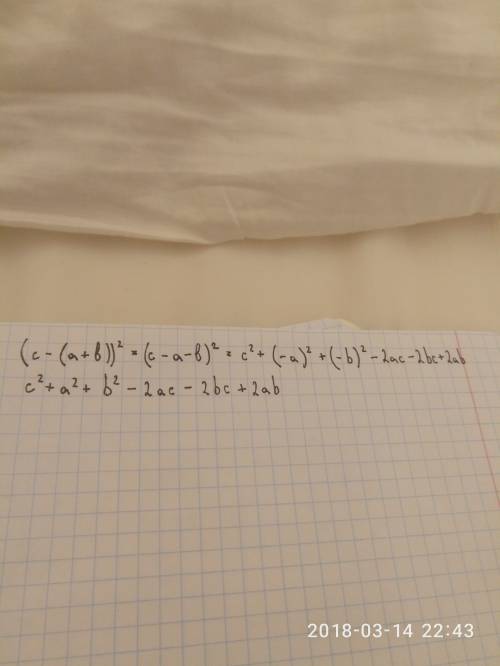 (c - (a+b))² = (c-a-b)² = c² + (-a)² + (-b)² - 2ac - 2bc + 2ab
c² + a² + b² - 2ac - 2bc + 2ab
2018-03-14 22:43